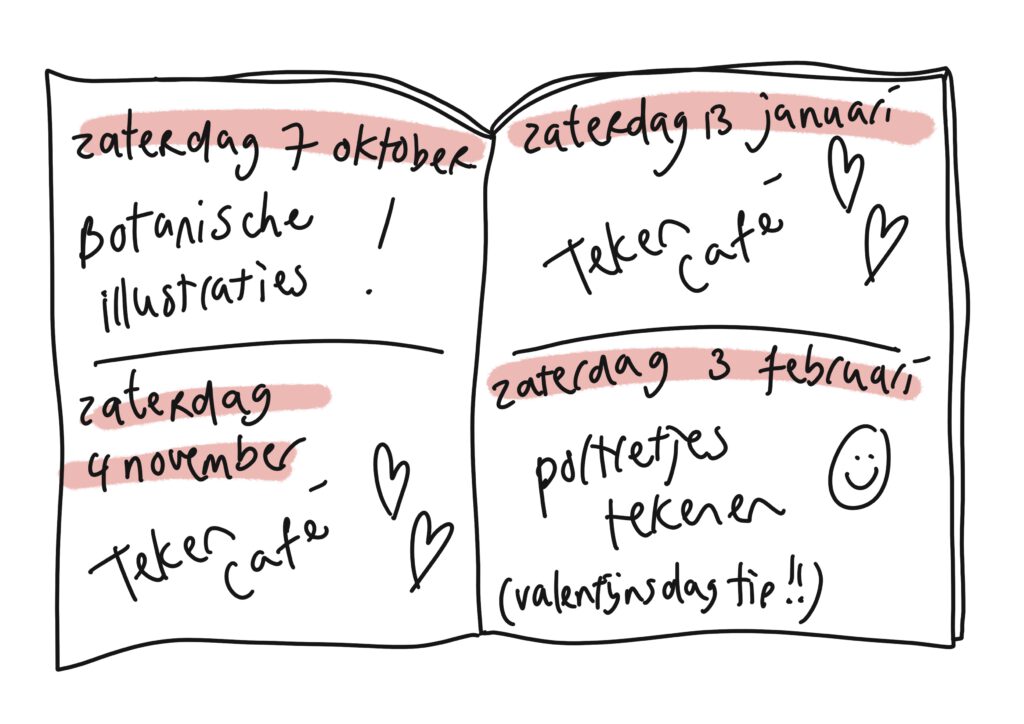 zaterdag 7 oktober
Botanische !
illustraties
zaterdag
4 november
Teken
café
zaterdag 13 januari
Teken
café
zaterdag 3 februari
portretjes
tekenen
(valentijnsdag tip!!)